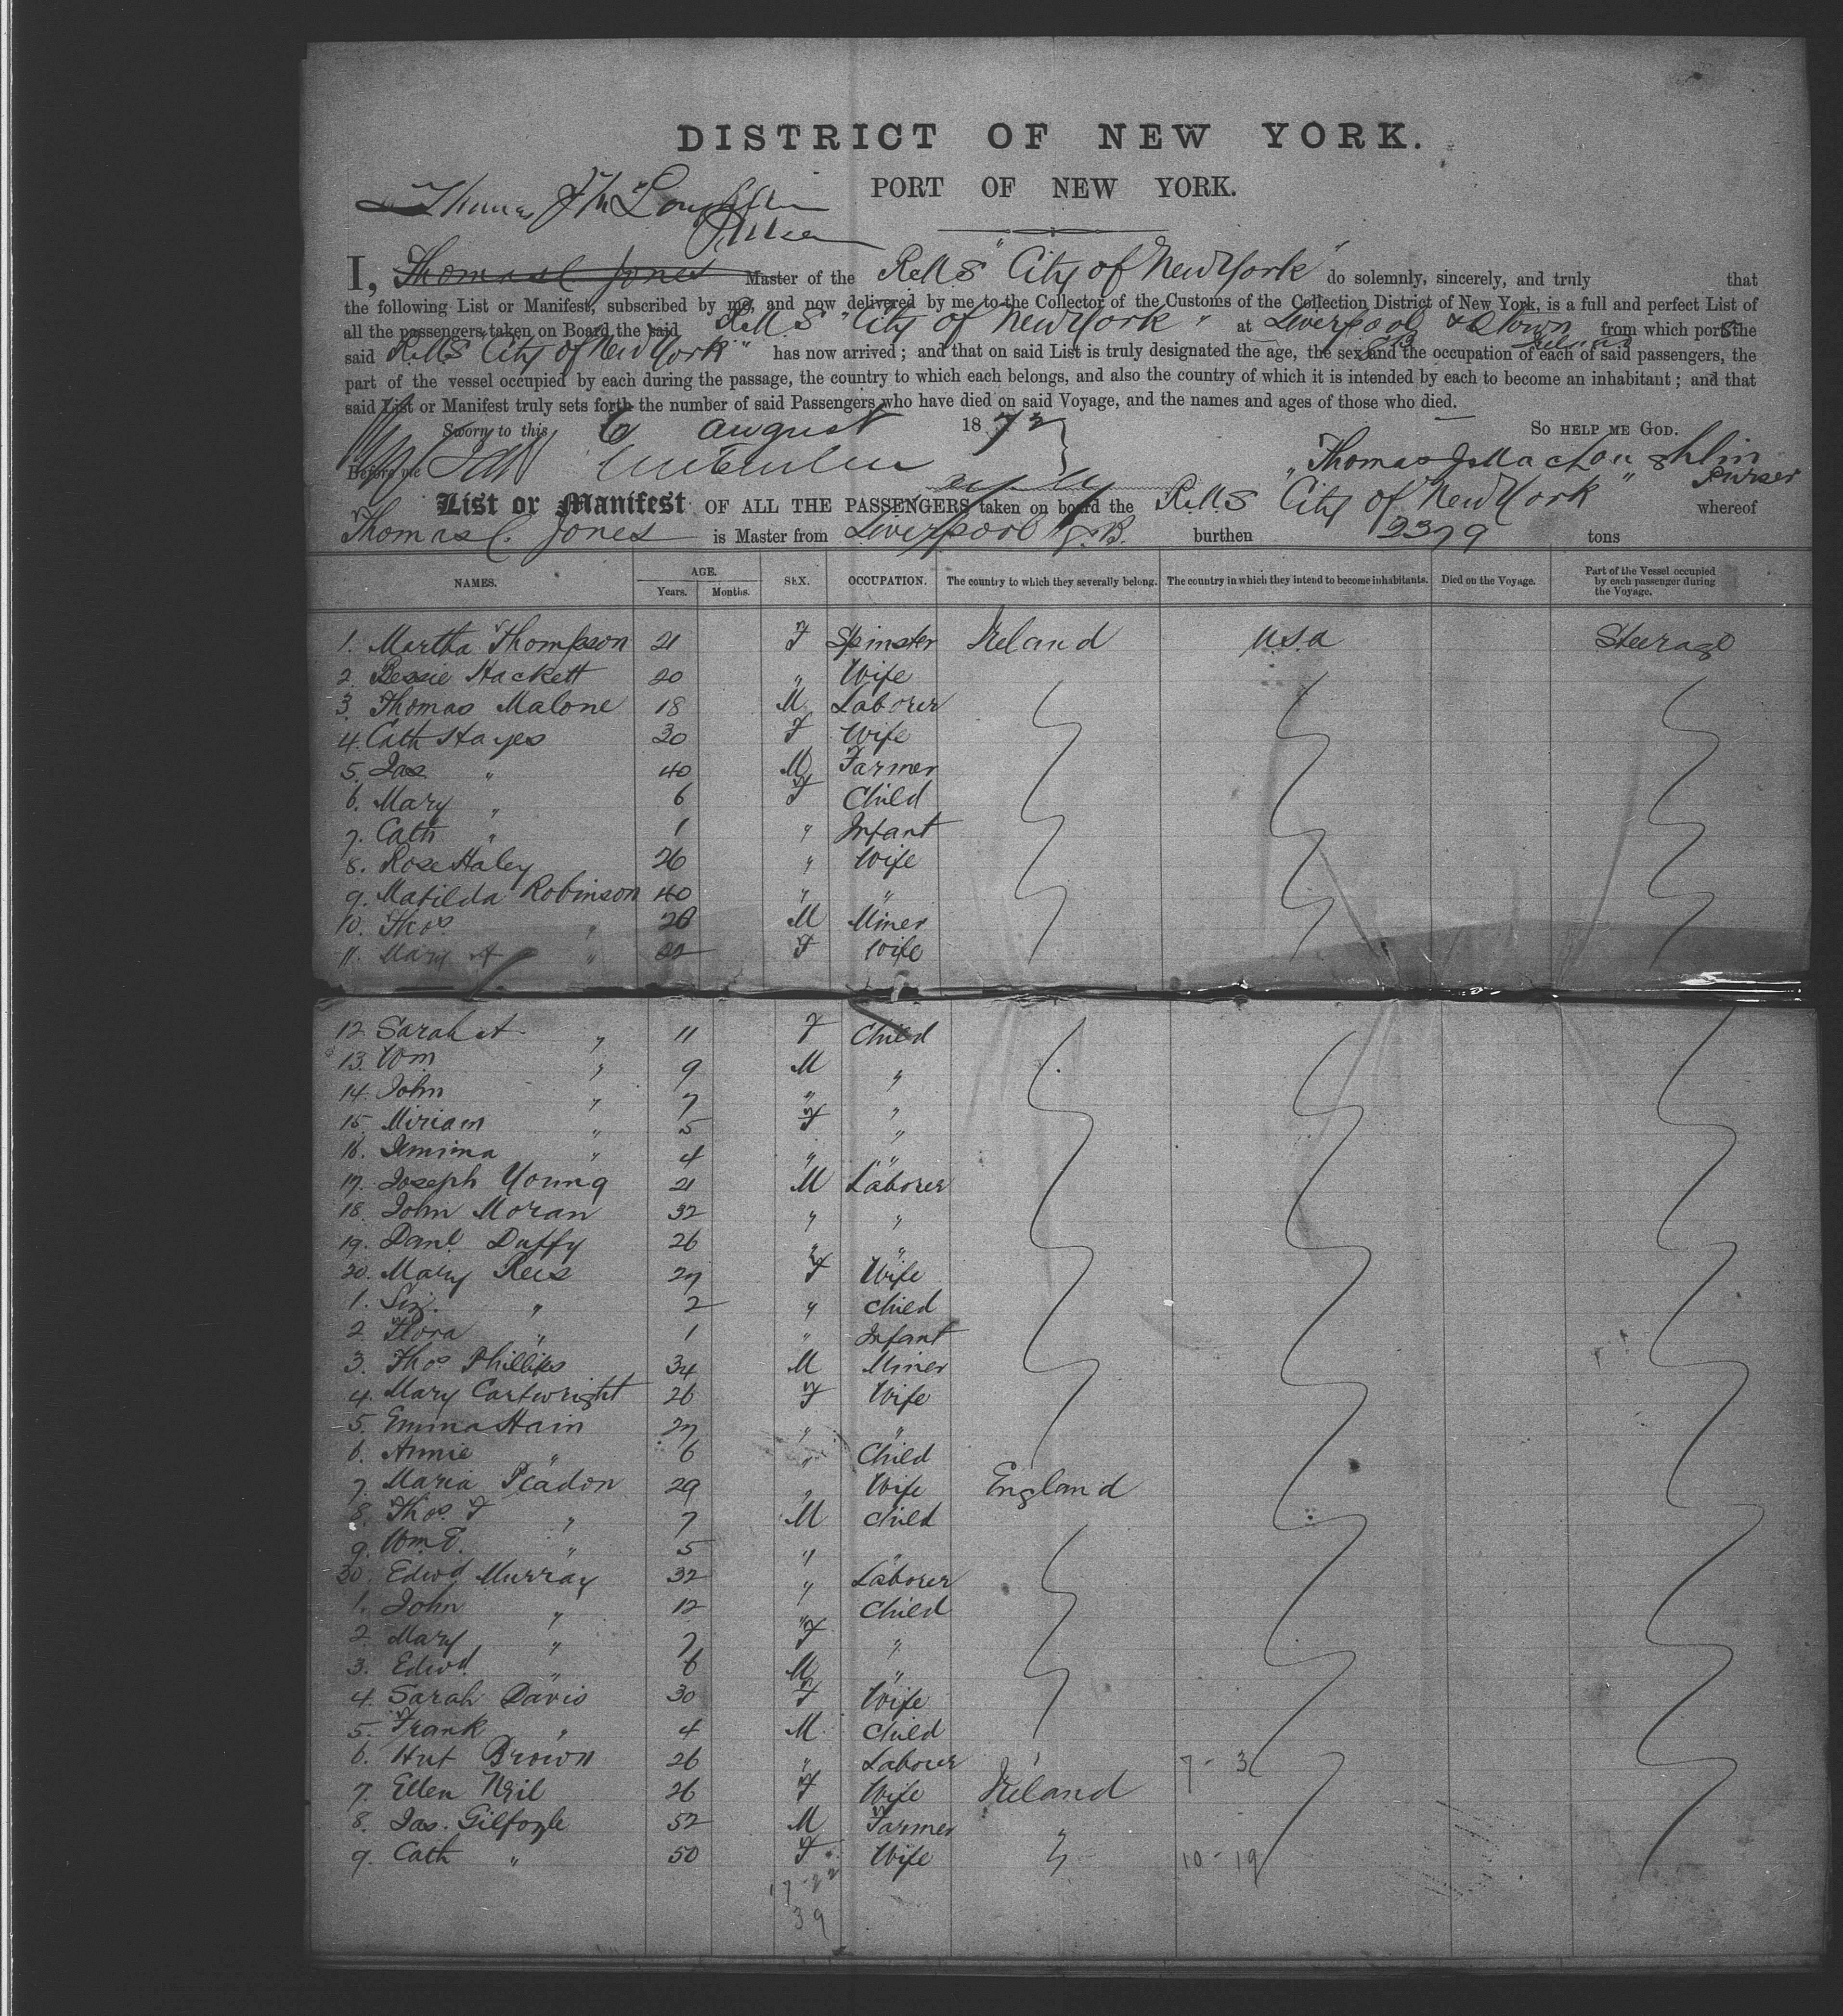 DISTRICT OF NEW YORK.
PORT OF NEW YORK.
Thomas J McLoughlin
Purser
I, Thomas C Jones Master of the R.M.S "City of New York" do solemnly, sincerely, and truly that
the following List or Manifest, subscribed by me, and now delivered by me to the Collector of the Customs of the Collection District of New York, is a full and perfect List of
all the passengers taken on Board the said R.M.S "City of New York" at Liverpool & Qtown from which ports the
GB Ireland
said R.M.S "City of New York" has now arrived; and that on said List is truly designated the age, the sex and the occupation of each of said passengers, the
part of the vessel occupied by each during the passage, the country to which each belongs, and also the country of which it is intended by each to become an inhabitant; and that
said List or Manifest truly sets forth the number of said Passengers who have died on said Voyage, and the names and ages of those who died.
Sworn to this 6 August 1872 So help me God.
Before me Thomas J MacLoughlin
Purser
List or Manifest OF ALL THE PASSENGERS taken on board the R.M.S City of New York" whereof
Thomas C. Jones is Master from Liverpool G.B. burthen 2379 tons
NAMES. AGE. Years. Months. SEX. OCCUPATION. The country to which they severally belong. The country in which they intend to become inhabitants. Died on the Voyage. Part of the Vessel occupied by each passenger during the Voyage.
1. Martha Thompson 21 F Spinster Ireland U.S.A Steerage
2. Bessie Hackett 20 " Wife
3. Thomas Malone 18 M Laborer
4. Cath Hayes 30 F Wife
5. Jas " 40 M Farmer
6. Mary " 6 F Child
7. Cath " 1 " Infant
8. Rose Haley 26 " Wife
9. Matilda Robinson 40 " "
10. Thos " 26 M Miner
11. Mary A " 22 F Wife
12 Sarah A " 11 F Child
13. Wm " 9 M "
14. John " 7 " "
15. Miriam " 5 F "
16. Jemima " 4 " "
17. Joseph Young 21 M Laborer
18. John Moran 32 " "
19. Danl Duffy 26 " "
20. Mary Rees 27 F Wife
1. Liz. " 2 " Child
2. Flora " 1 " Infant
3. Thos Phillips 34 M Miner
4. Mary Cartwright 26 F Wife
5. Emma Hain 27 " "
6. Annie " 6 " Child
7. Maria Pladon 29 " Wife England
8. Thos F " 7 M Child
9. Wm E. " 5 " "
30. Edwd Murray 32 " Laborer
1. John " 12 " Child
2. Mary " 7 F "
3. Edwd " 6 M "
4. Sarah Davis 30 F Wife
5. Frank " 4 M Child
6. Hut Brown 26 " Laborer 7 - 3
7. Ellen Neil 26 F Wife Ireland
8. Jas. Gilfoyle 52 M Farmer
9. Cath " 50 F Wife " 10 - 19
17 - 22
39